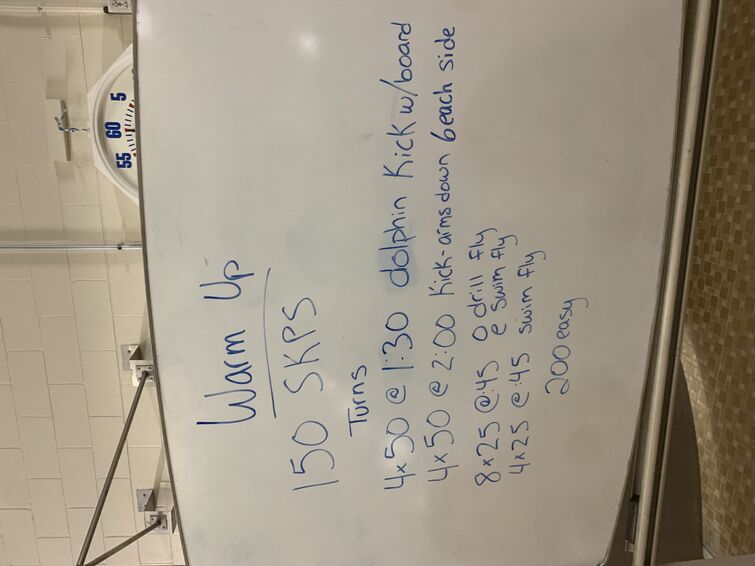 Warm Up
150 SKPS
Turns
4x50 @ 1:30 dolphin Kick w/board
4x50 @ 2:00 Kick-arms down 6each side
8x25 @:45 O drill fly
e swim fly
4x25 @ :45 swim fly
200 easy
55 60 5